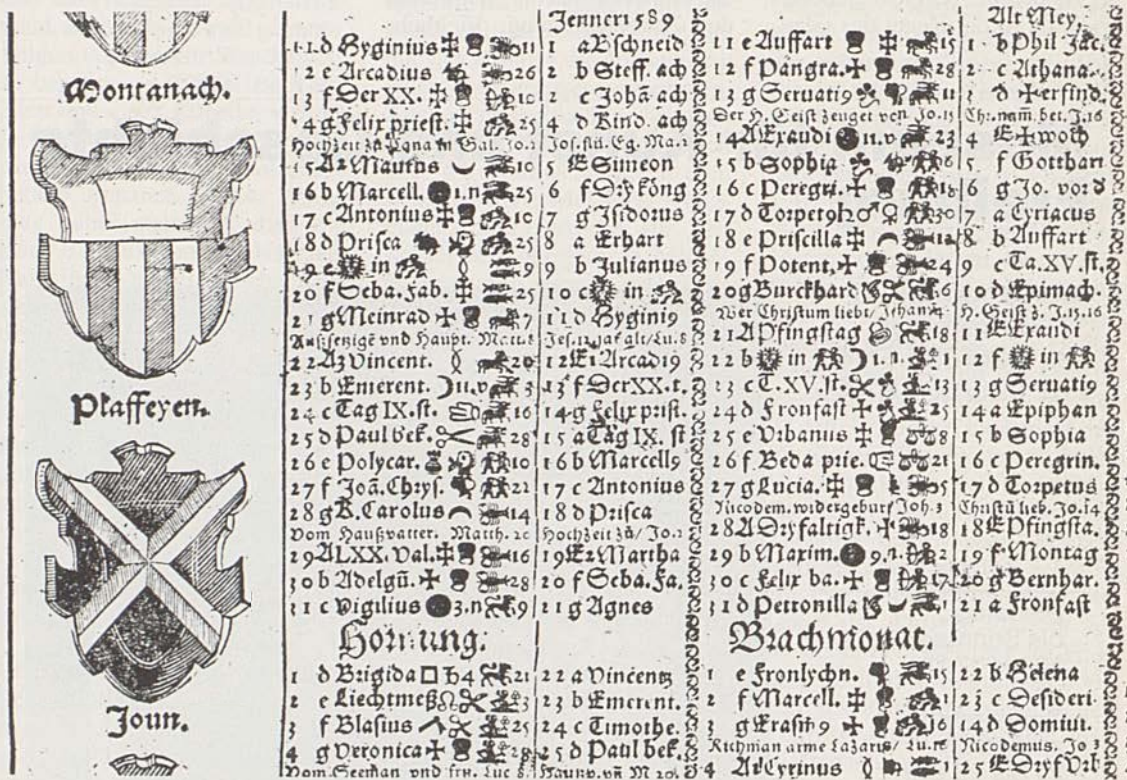 Montanach.
Plaffeyen.
Joun.
11 d Hyginius
12 e Arcadius 26
13 f Der XX. 10
14 g Felix priest. 25
Hochzeit zů Cana in Gal. Jo. 2
15 A2 Maurus 10
16 b Marcell. 1. n. 25
17 c Antonius 10
18 d Prisca 25
19 e in 9
20 f Seba. Fab. 25
21 g Meinrad 7
Außsetzige vnd Haupt. Matt. 8
22 A3 Vincent. 20
23 b Emerent. 11. v 3
24 c Tag IX. st. 16
25 d Paul bek. 28
26 e Polycar. 10
27 f Joã. Chrys. 22
28 g K. Carolus 14
Vom Haußvatter. Matth. 20
29 A LXX. Val. 16
30 b Adelgũ. 28
31 c Vigilius 3. n 9
Hornung.
1 d Brigida □ ♄ 4 21
2 e Liechtmeß 3
3 f Blasius 25
4 g Veronica 28
Vom Seeman vnd Luc 8
Jenner 1589
1 a Bschneid
2 b Steff. ach
2 c Johã ach
4 d Kind. ach
Jos. flü. Eg. Ma. 2
5 E Simeon
6 f Dry köng
7 g Isidorus
8 a Erhart
9 b Julianus
10 c in
11 d Hygini9
Jes. 12 jar alt/Lu. 8
12 E1 Arcadi9
13 f Der XX. t.
14 g Felix prist.
15 a Tag IX. st
16 b Marcell9
17 c Antonius
18 d Prisca
Hochzeit zů/ Jo. 2
19 E2 Martha
20 f Seba. Fa.
21 g Agnes
22 a Vincentz
23 b Emerent.
24 c Timothe.
25 d Paul bek.
11 e Auffart 15
12 f Pangra. 28
13 g Seruati9 11
Der H. Geist zeuget von Jo. 15
14 A Exaudi 11. v 23
15 b Sophia 6
16 c Peregri. 18
17 d Torpet9 ♄ ♂ ♀ 30
18 e Priscilla 12
19 f Potent. 24
20 g Burckhard 6
Wer Christum liebt/ Johan 14
21 A Pfingstag 18
22 b in 1. n. 1
23 c T. XV. st. 13
24 d Fronfast 25
25 e Vrbanus 8
26 f Beda prie. 21
27 g Lucia. 5
Nicodem. widergeburt Joh. 3
28 A Dryfaltigk. 18
29 b Maxim. 9. n. 2
30 c Felix ba. 17
31 d Petronilla 1
Brachmonat.
1 e Fronlychn. 15
2 f Marcell. 1
3 g Erasm9 16
Richman arme Lazarus/ Lu. 16
4 A1 Cyrinus 1
Alt Mey,
1 b Phil Jac.
2 c Athana.
3 d erfind.
Chr. nam. bet. J. 16
4 E woch
5 f Gotthart
6 g Jo. vor d
7 a Cyriacus
8 b Auffart
9 c Ta. XV. st.
10 d Epimach.
H. Geist z. J. 15. 16
11 E Exaudi
12 f in
13 g Seruati9
14 a Epiphan
15 b Sophia
16 c Peregrin.
17 d Torpetus
Christũ lieb. Jo. 14
18 E Pfingsta.
19 f Montag
20 g Bernhar.
21 a Fronfast
22 b Helena
23 c Desideri
14 d Domiti.
Nicodemus. Jo 3
25 E Dryf Vrb